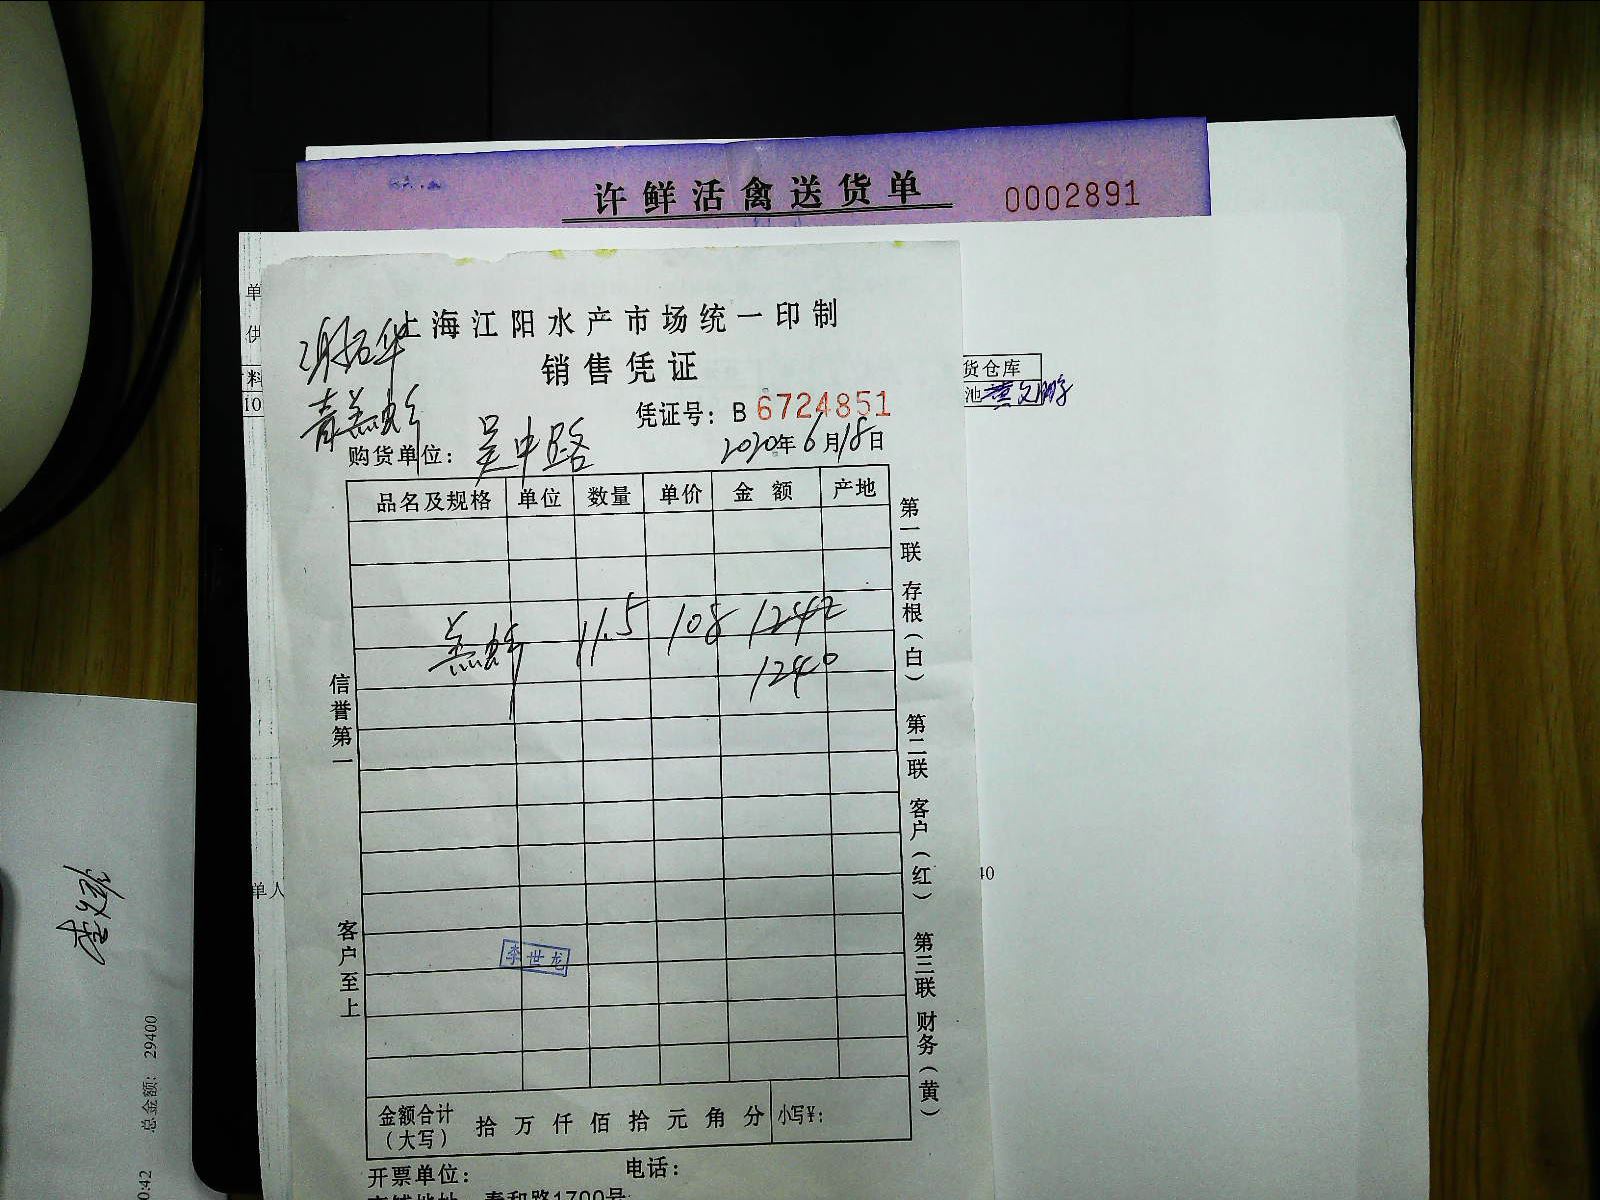 许鲜活禽送货单 0002891
上海江阳水产市场统一印制
销售凭证
凭证号: B 6724851
购货单位: 吴中路 2020年6月18日
品名及规格 单位 数量 单价 金额 产地
羔虾 11.5 108 1242
1240
信誉第一
客户至上
李世龙
第一联 存根(白) 第二联 客户(红) 第三联 财务(黄)
金额合计(大写) 拾 万 仟 佰 拾 元 角 分 小写¥:
开票单位: 电话:
泰和路1700号
货仓库
池
单
供
料
10
单人
40
总金额: 29400
0:42